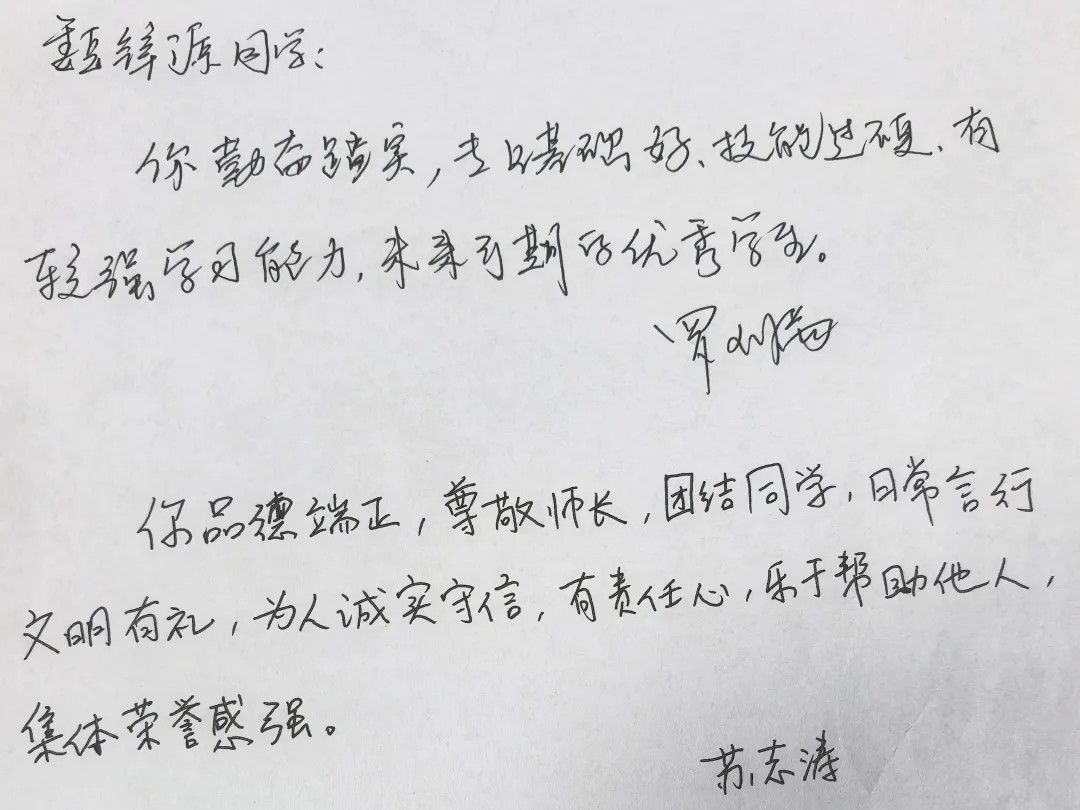 源同学:
你勤奋踏实,专业基础好、技能过硬、有
较强学习能力,未来可期的优秀学生。
罗
你品德端正,尊敬师长,团结同学,日常言行
文明有礼,为人诚实守信,有责任心,乐于帮助他人,
集体荣誉感强。
苏志涛